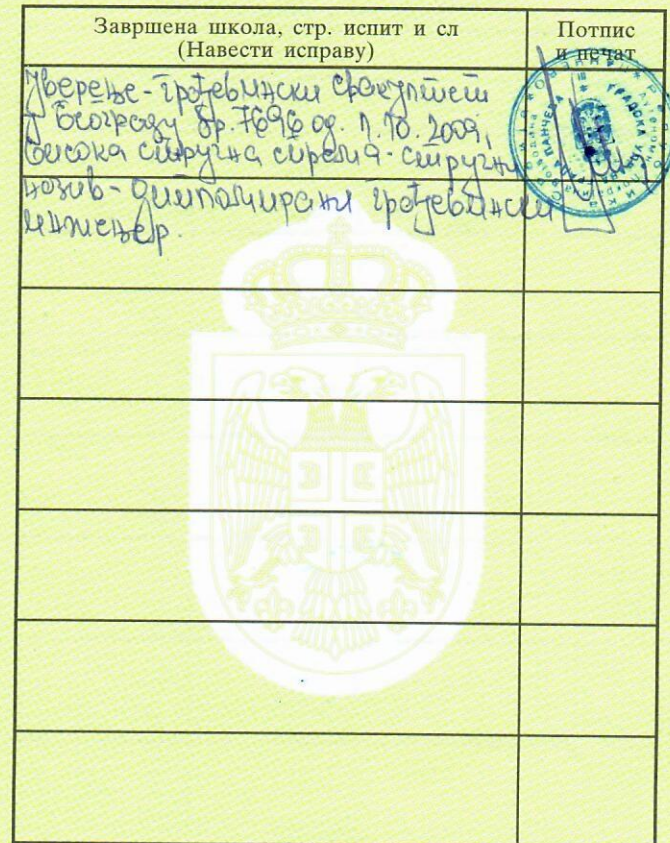 Завршена школа, стр. испит и сл
(Навести исправу)
Потпис
и печат
Уверење-грађевински факултет
у Београду бр. 7696 од.
10. 2009,
Висока стручна спрема-стручни
назив-дипломирани грађевински
инжењер.